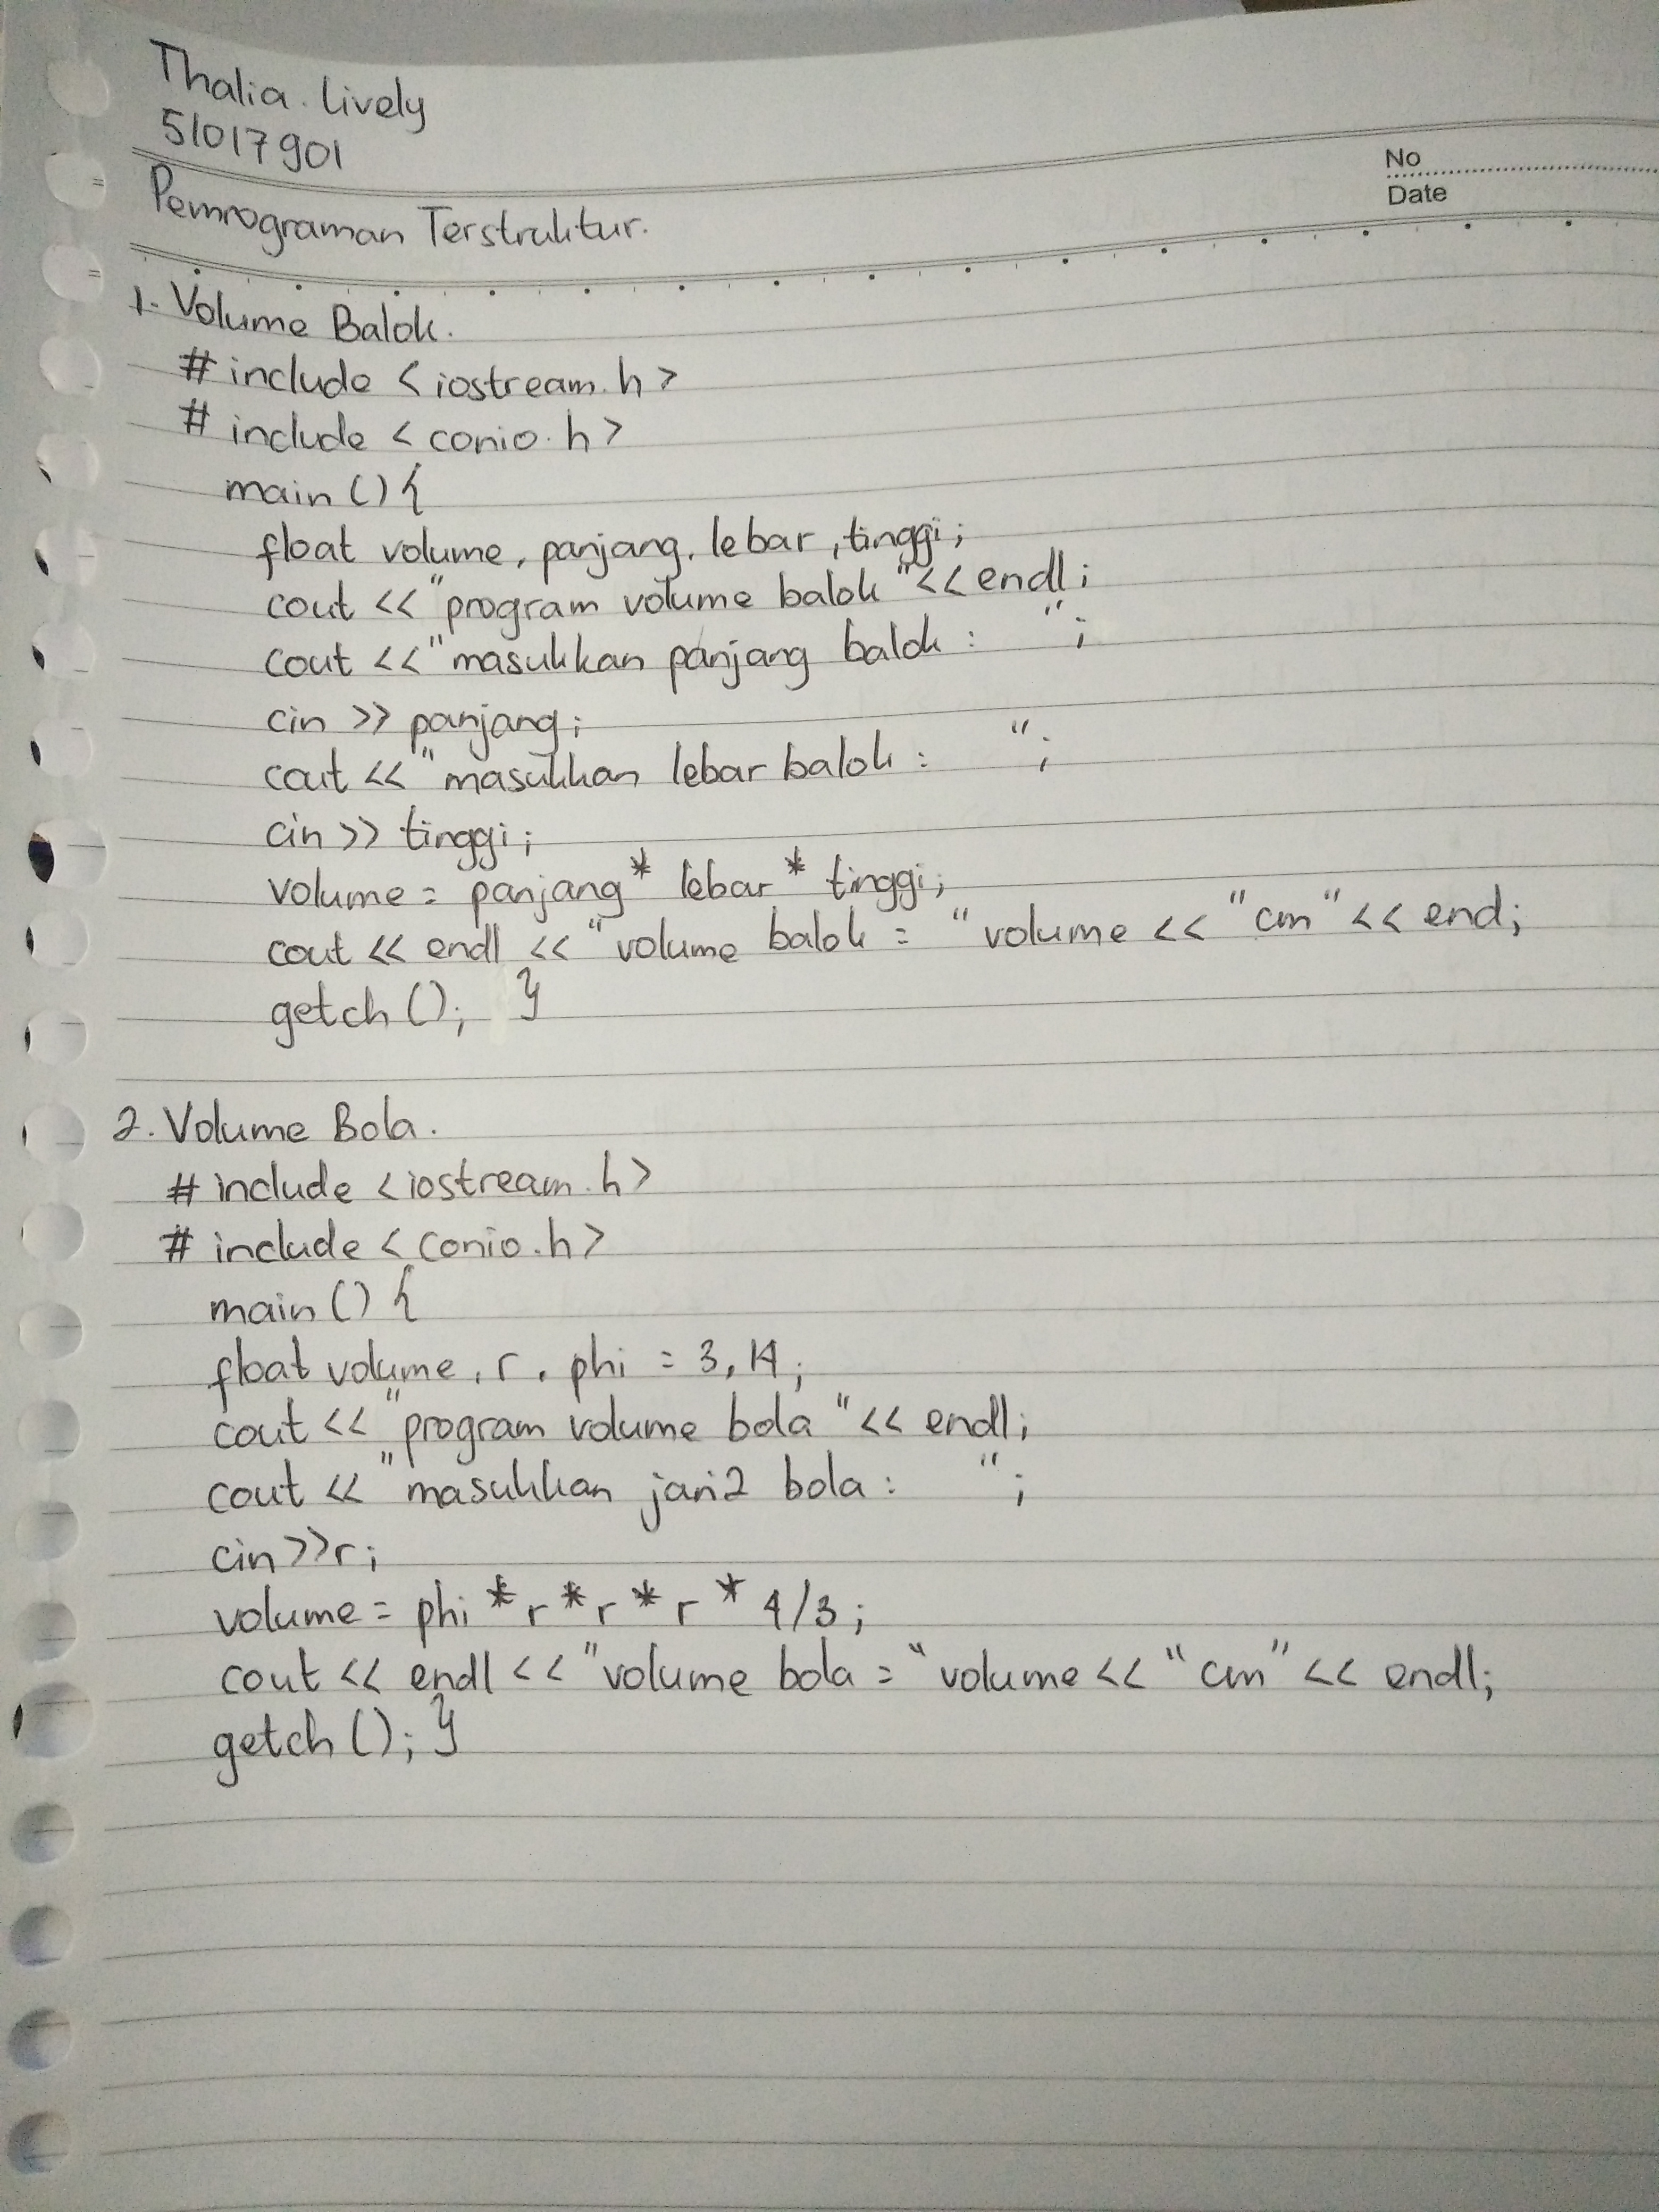 Thalia. Lively
51017901
No
Date
Pemrograman Terstruktur.
1. Volume Balok.
# include <iostream.h>
# include <conio.h>
main () {
float volume, panjang, lebar, tinggi;
cout << "program volume balok" << endl;
cout << "masukkan panjang balok : ";
cin >> panjang;
cout << "masukkan lebar balok : ";
cin >> tinggi;
volume = panjang * lebar * tinggi;
cout << endl << "volume balok = "volume << "cm" << end;
getch (); }
2. Volume Bola.
# include <iostream.h>
# include <conio.h>
main () {
float volume, r, phi = 3,14;
cout << "program volume bola" << endl;
cout << "masukkan jari2 bola : ";
cin >> r;
volume = phi * r * r * r * 4/3;
cout << endl << "volume bola = "volume << "cm" << endl;
getch (); }